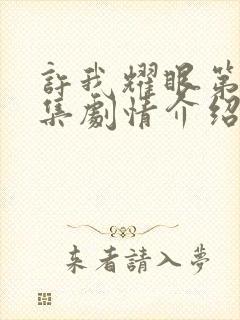 許我耀眼第
集劇情介紹
来者請入夢